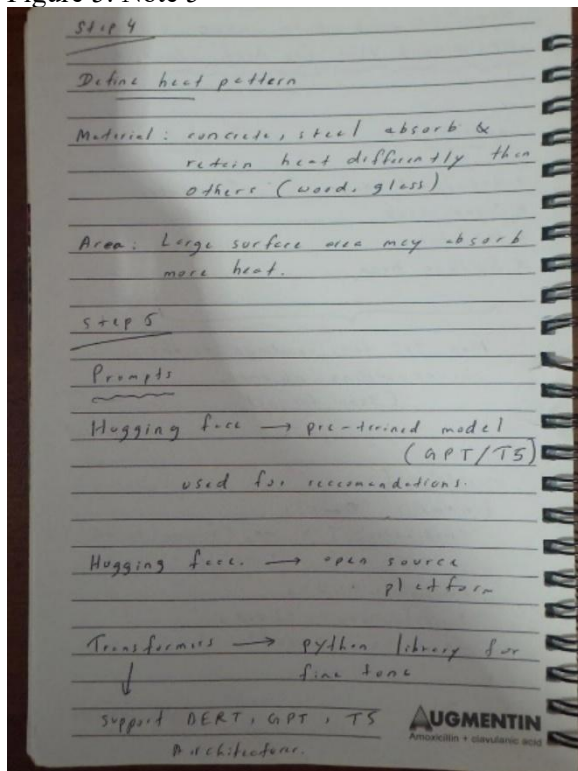 Figure 3: Note 3
Step 4
Define heat pattern
Material: concrete, steel absorb &
retain heat differently then
others (wood, glass)
Area: Large surface area may absorb
more heat.
step 5
Prompts
Hugging face → pre-trined model
(GPT/T5)
used for reccomandations.
Hugging face. → open source
platform
Transformers → python library for
fine tone
↓
support BERT, GPT, T5
Architectore.
AUGMENTIN
Amoxicillin + clavulanic acid